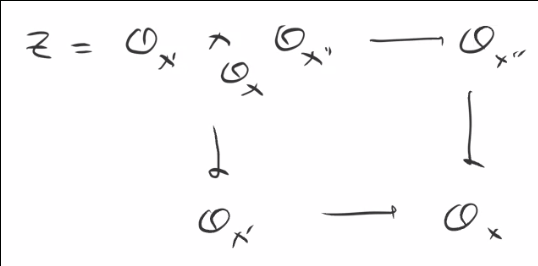 Z = O_{X'} ×_{O_X} O_{X''} → O_{X''}
↓ ↓
O_{X'} → O_X